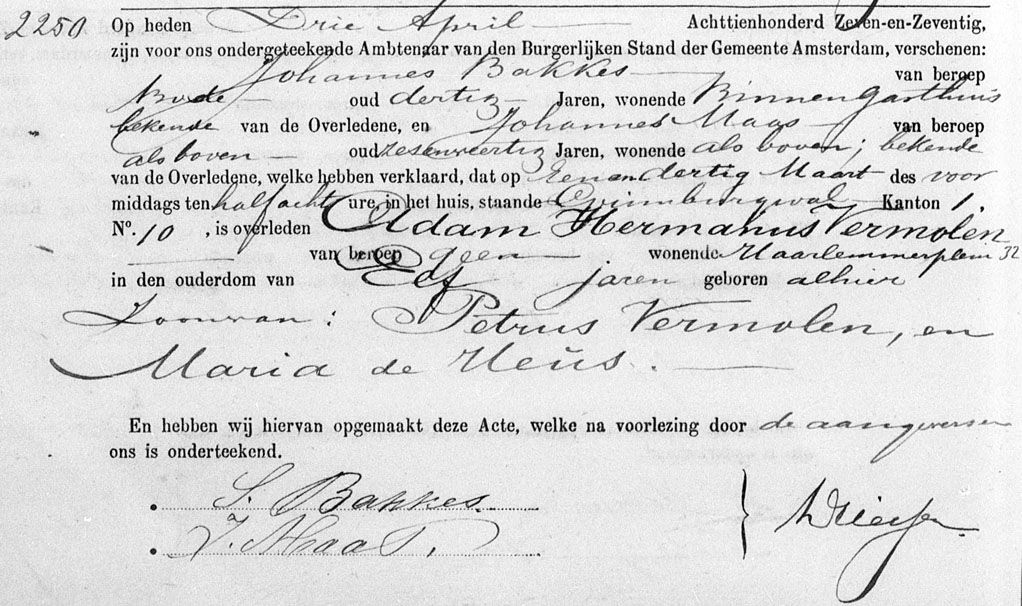 2250. Op heden Drie April Achttienhonderd Zeven-en-Zeventig,
zijn voor ons ondergeteekende Ambtenaar van den Burgerlijken Stand der Gemeente Amsterdam, verschenen:
Johannes Bakkes van beroep
Bode oud dertig Jaren, wonende Binnengasthuis
bekende van de Overledene, en Johannes Maas van beroep
als boven oud zesenveertig Jaren, wonende als boven; bekende
van de Overledene, welke hebben verklaard, dat op Eenendertig Maart des voor
middags ten half acht ure, in het huis, staande Grimburgwal Kanton 1,
No. 10, is overleden Adam Hermanus Vermolen
van beroep geen wonende Haarlemmerplein 32
in den ouderdom van Elf jaren geboren alhier
Zoon van: Petrus Vermolen, en
Maria de Heus.
En hebben wij hiervan opgemaakt deze Acte, welke na voorlezing door de aangevers en
ons is onderteekend.
Bakkes.
J. Maas.